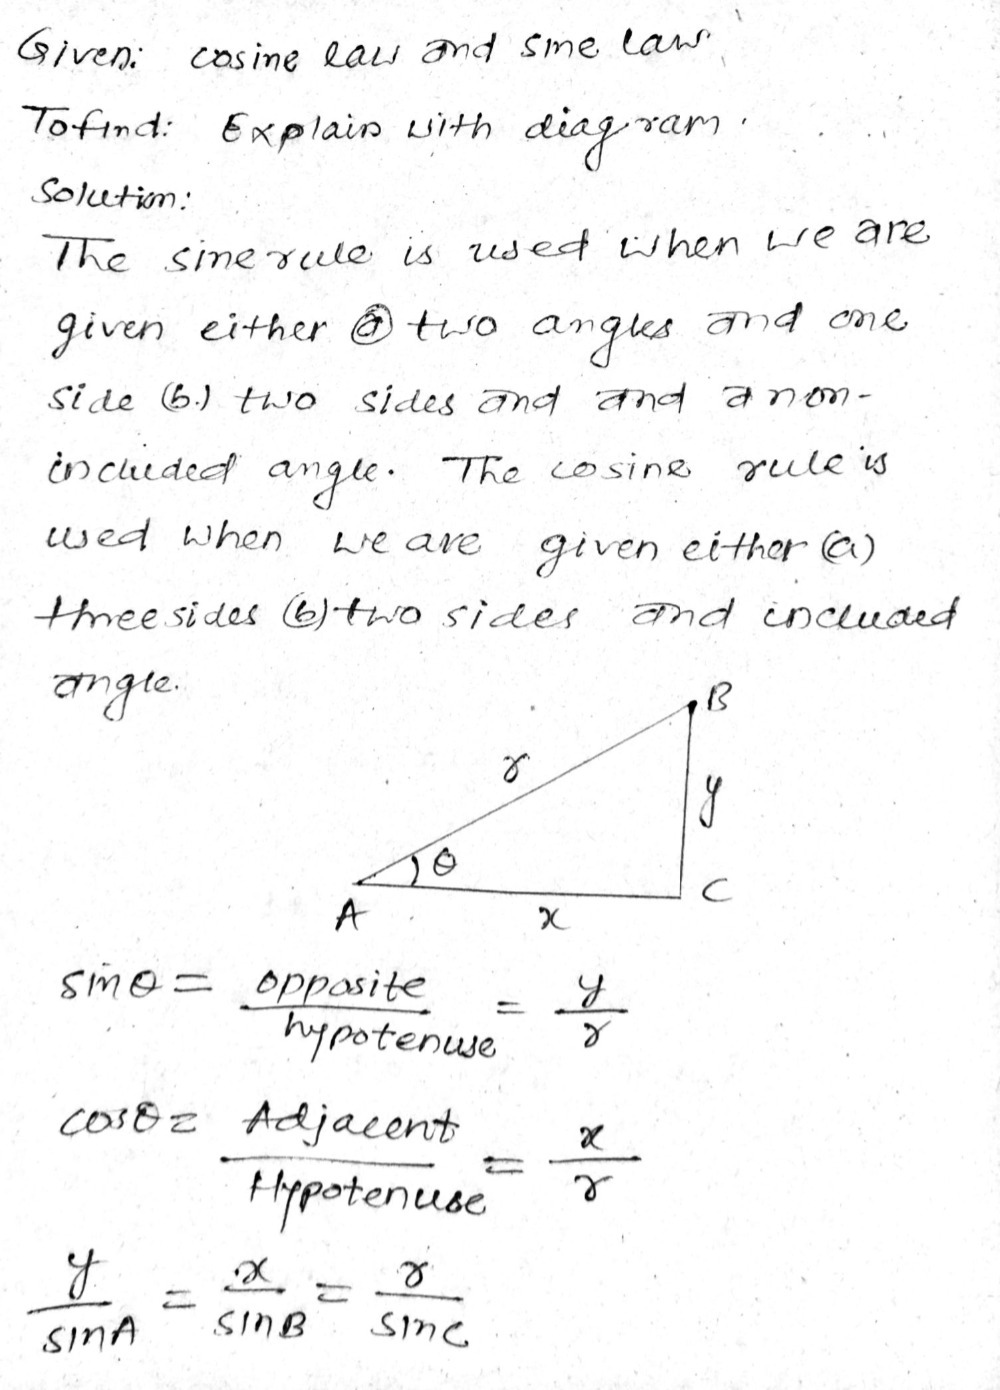 Given: cosine law and sine law
To find: Explain with diagram.
Solution:
The sine rule is used when we are
given either (a) two angles and one
side (b.) two sides and and a non-
included angle. The cosine rule is
used when we are given either (a)
three sides (b) two sides and included
angle.
B
r
y
θ
A
x
C
sinθ = opposite / hypotenuse = y / r
cosθ = Adjacent / Hypotenuse = x / r
y / sinA = x / sinB = r / sinC